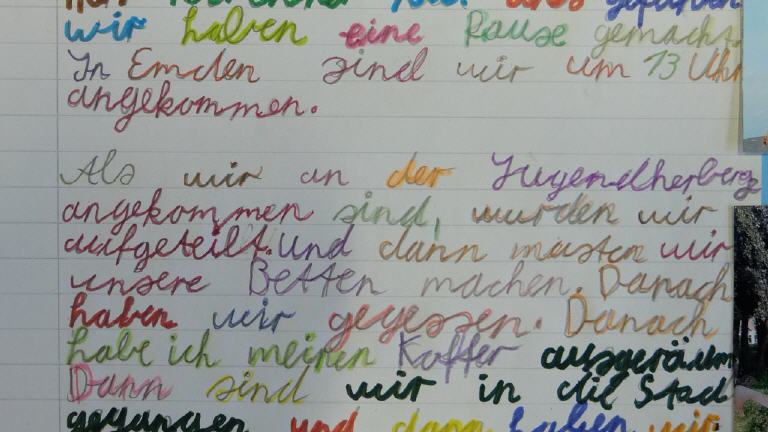 wir haben eine Pause gemacht.
In Emden sind wir um 13 Uhr
angekommen.
Als wir an der Jugendherberge
angekommen sind, wurden wir
aufgeteilt. Und dann musten wir
unsere Betten machen. Danach
haben wir gegessen. Danach
habe ich meinen Koffer ausgeräum
Dann sind wir in die Stad
gegangen und dann haben wir